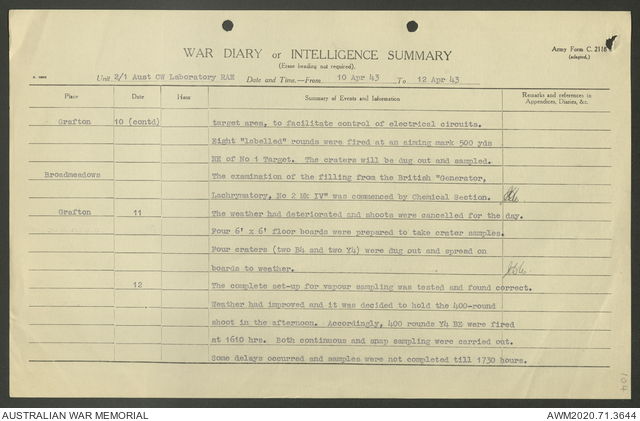 WAR DIARY or INTELLIGENCE SUMMARY
Army Form C. 2118
(Erase heading not required).
(adapted.)
Unit 2/1 Aust CW Laboratory RAE Date and Time.—From 10 Apr 43 To 12 Apr 43
Place Date Hour Summary of Events and Information Remarks and references to Appendices, Diaries, &c.
Grafton 10 (contd) target area, to facilitate control of electrical circuits.
Eight "labelled" rounds were fired at an aiming mark 500 yds
NE of No 1 Target. The craters will be dug out and sampled.
Broadmeadows The examination of the filling from the British "Generator,
Lachrymatory, No 2 Mk IV" was commenced by Chemical Section.
Grafton 11 The weather had deteriorated and shoots were cancelled for the day.
Four 6' x 6' floor boards were prepared to take crater samples.
Four craters (two B4 and two Y4) were dug out and spread on
boards to weather.
12 The complete set-up for vapour sampling was tested and found correct.
Weather had improved and it was decided to hold the 400-round
shoot in the afternoon. Accordingly, 400 rounds Y4 BE were fired
at 1610 hrs. Both continuous and snap sampling were carried out.
Some delays occurred and samples were not completed till 1730 hours.
104
AUSTRALIAN WAR MEMORIAL
AWM2020.71.3644